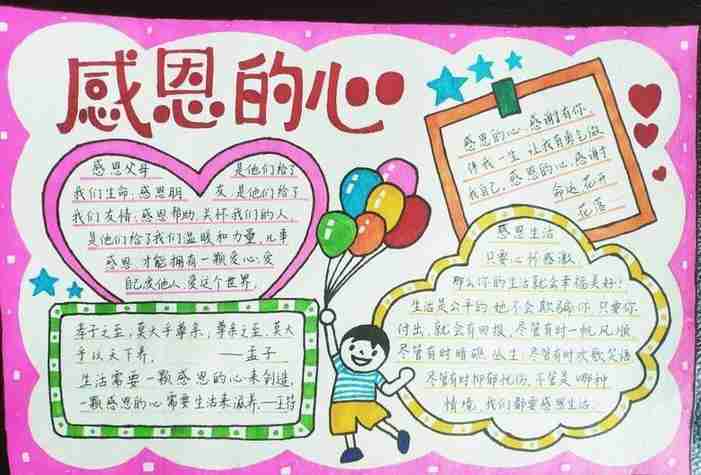 感恩的心
感恩父母 是他们给了
我们生命,感恩朋 友,是他们给了
我们友情,感恩帮助、关怀我们的人,
是他们给了我们温暖和力量,凡事
感恩 才能拥有一颗爱心,爱
自己,爱他人,爱这个世界.
感恩的心,感谢有你.
伴我一生 让我有勇气做
我自己,感恩的心,感谢
命运 花开
花落
孝子之至,莫大乎尊亲,尊亲之至,莫大
乎以天下养. ——孟子
生活需要一颗感恩的心来创造,
一颗感恩的心需要生活来滋养.——王符
感恩生活
只要心存感激
那么你的生活就会幸福美好!
生活是公平的 她不会欺骗你,只要你
付出,就会有回报,尽管有时一帆风顺
尽管有时暗礁丛生;尽管有时欢歌笑语
尽管有时抑郁忧伤,不管是哪种
情境,我们都要感恩生活.